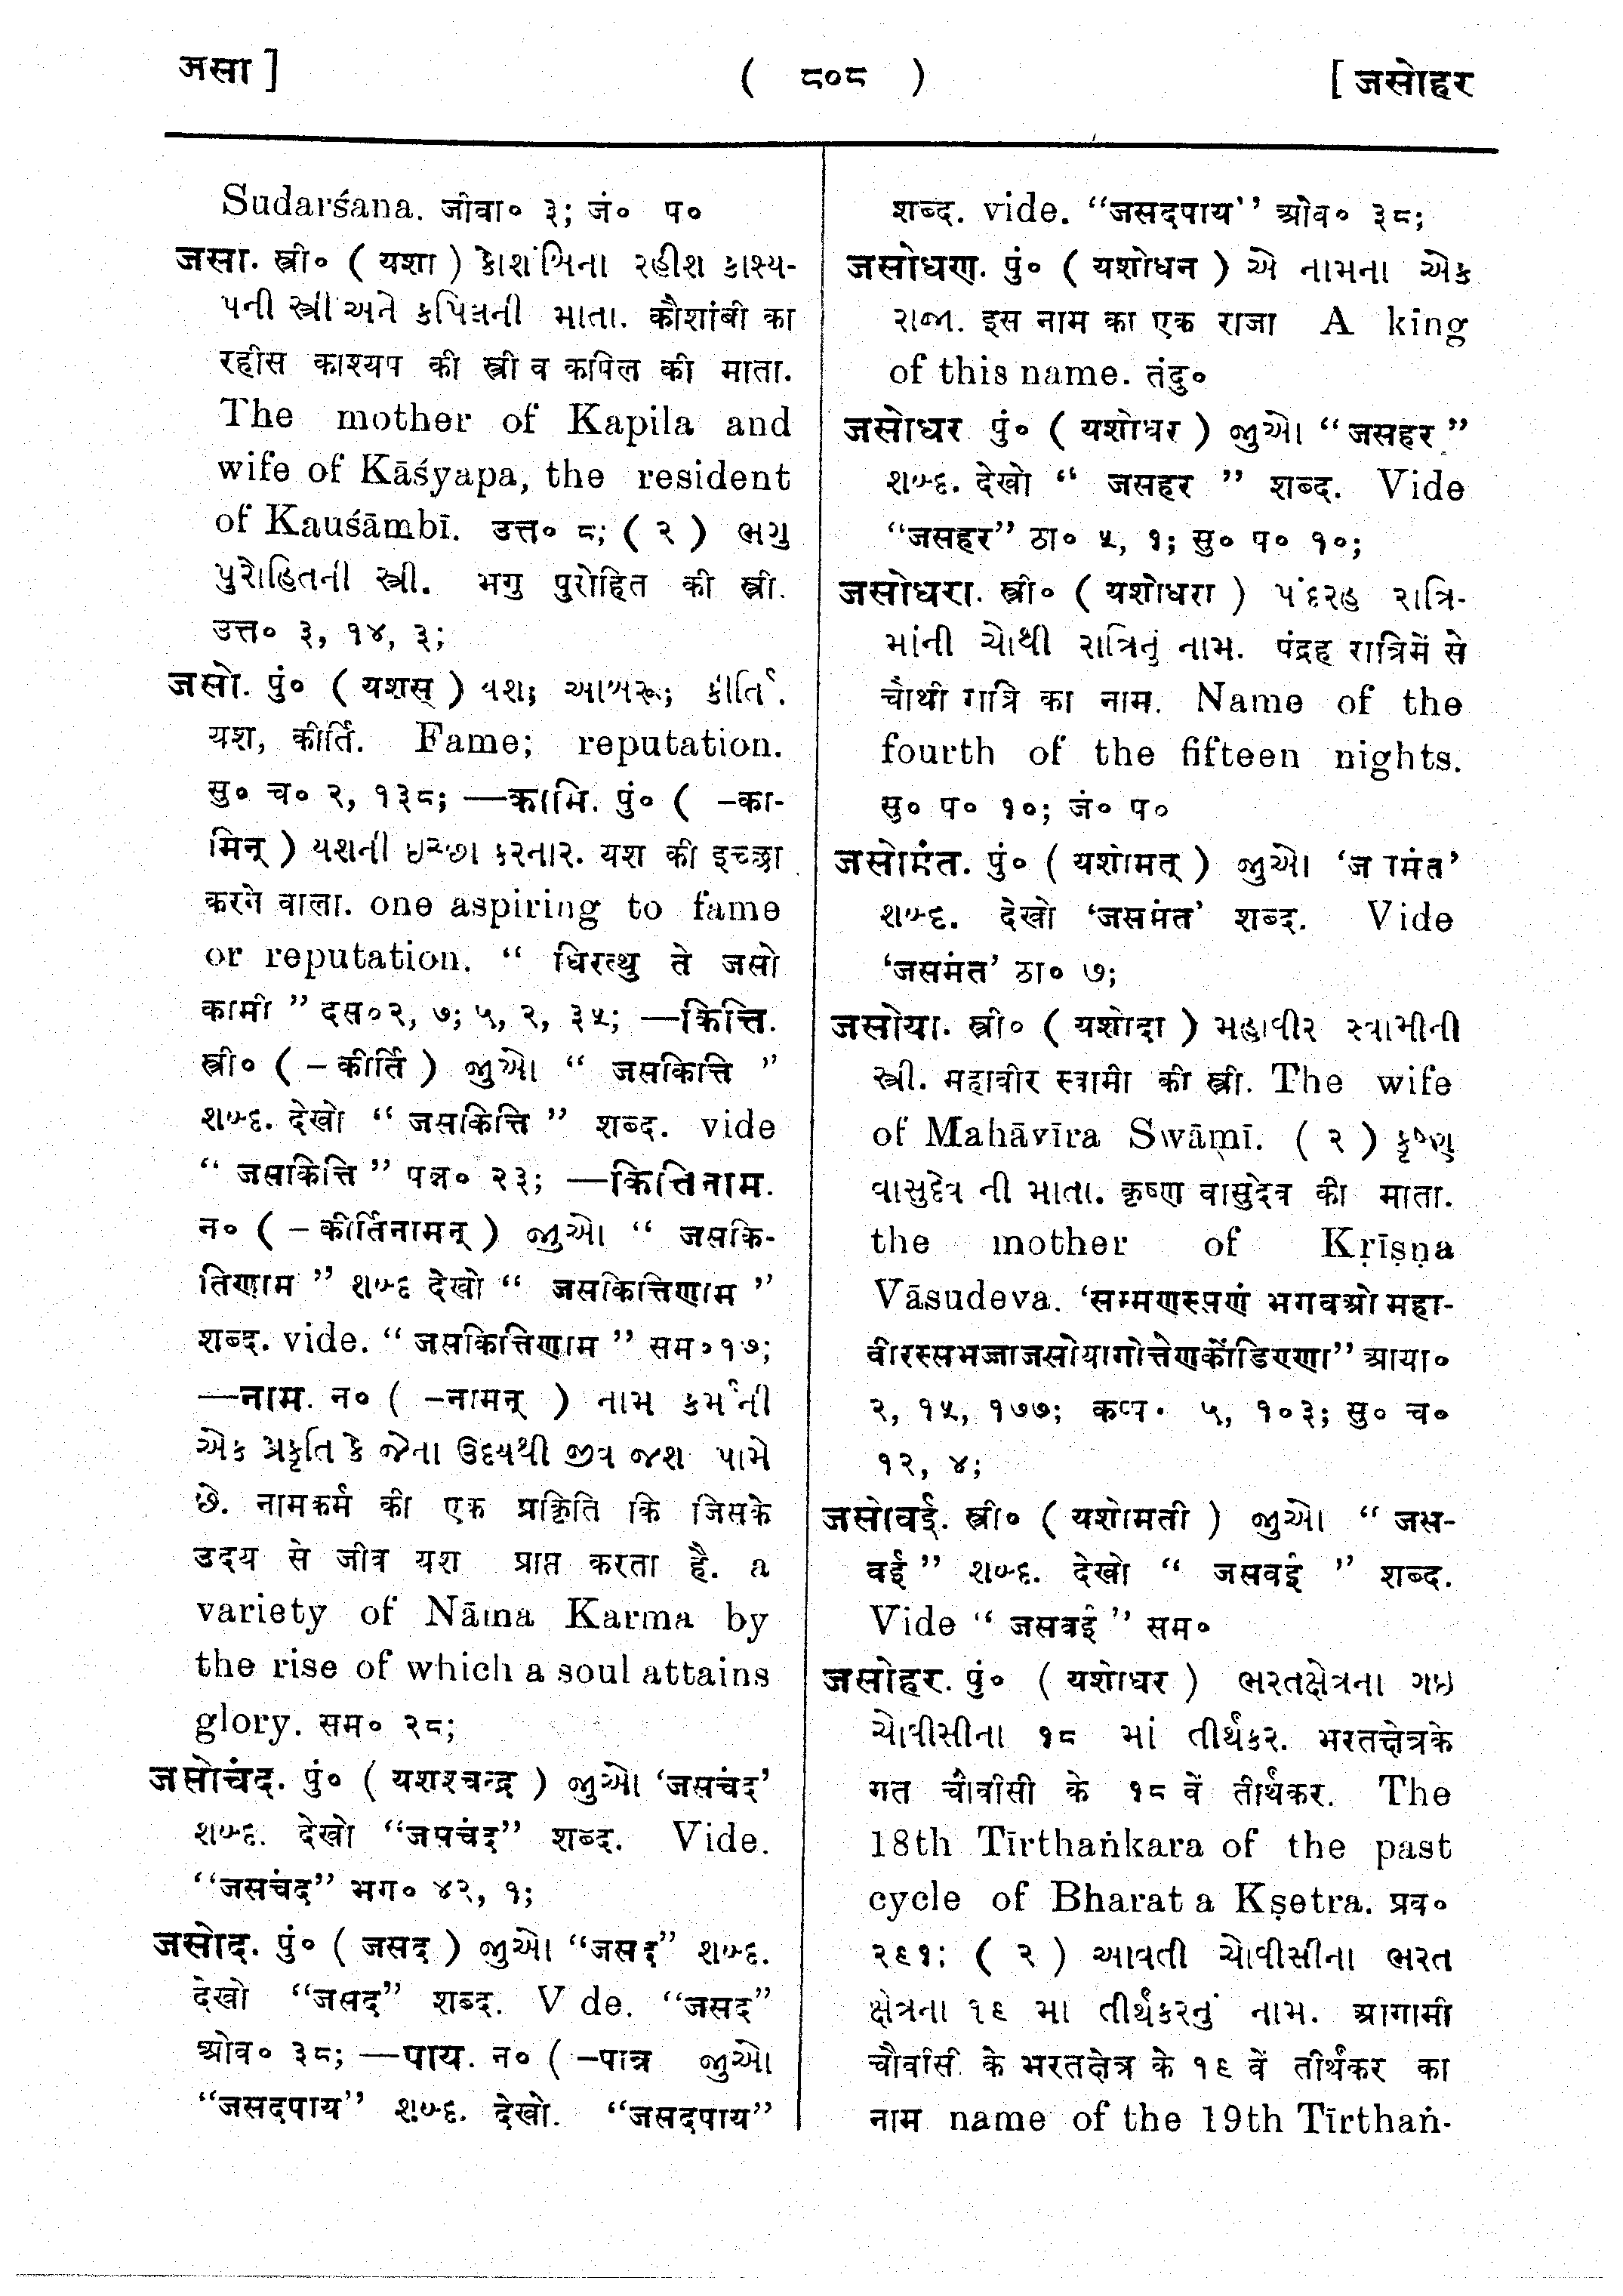 जसा ]
( ८०८ )
[ जसोहर
Sudarśana. जीवा० ३; जं० प०
जसा. स्त्री० ( यशा ) કોશંબિના રહીશ કાશ્ય-
પની સ્ત્રી અને કપિલની માતા. कौशांबी का
रहीस काश्यप की स्त्री व कपिल की माता.
The mother of Kapila and
wife of Kāśyapa, the resident
of Kauśāmbī. उत्त० ८; ( २ ) ભગુ
પુરોહિતની સ્ત્રી. भगु पुरोहित की स्त्री.
उत्त० ३, १४, ३;
जसो. पुं० ( यशस् ) યશ; આબરૂ; કીર્તિ.
यश, कीर्ति. Fame; reputation.
सु० च० २, १३८; —कामि. पुं० ( -का-
मिन् ) યશની ઇચ્છા કરનાર. यश की इच्छा
करने वाला. one aspiring to fame
or reputation. “ धिरत्थु ते जसो
कामी ” दस०२, ७; ५, २, ३५; —कित्ति.
स्त्री० ( – कीर्ति ) જુઓ “ जसकित्ति ”
શબ્દ. देखो “ जसकित्ति ” शब्द. vide
“ जसकित्ति ” पन्न० २३; —कित्तिनाम.
न० ( – कीर्तिनामन् ) જુઓ “ जसकि-
त्तिणाम ” શબ્દ देखो “ जसकित्तिणाम ”
शब्द. vide. “ जसकित्तिणाम ” सम०१७;
—नाम. न० ( -नामन् ) નામ કર્મની
એક પ્રકૃતિ કે જેના ઉદયથી જીવ જશ પામે
છે. नामकर्म की एक प्रक्रिति कि जिसके
उदय से जीव यश प्राप्त करता है. a
variety of Nāma Karma by
the rise of which a soul attains
glory. सम० २८;
जसोचंद. पुं० ( यशश्चन्द्र ) જુઓ ‘जसचंद’
શબ્દ. देखो “जसचंद” शब्द. Vide.
“जसचंद” भग० ४२, १;
जसोद. पुं० ( जसद ) જુઓ “जसद” શબ્દ.
देखो “जसद” शब्द. V de. “जसद”
ओव० ३८; —पाय. न० ( -पात्र જુઓ
“जसदपाय” શબ્દ. देखो. “जसदपाय”
शब्द. vide. “जसदपाय” ओव० ३८;
जसोधण. पुं० ( यशोधन ) એ નામના એક
રાજા. इस नाम का एक राजा A king
of this name. तंदु०
जसोधर पुं० ( यशोधर ) જુઓ “ जसहर ”
શબ્દ. देखो “ जसहर ” शब्द. Vide
“जसहर” ठा० ५, १; सु० प० १०;
जसोधरा. स्त्री० ( यशोधरा ) પંદરહ રાત્રિ-
માંની ચોથી રાત્રિનું નામ. पंद्रह रात्रिमें से
चौथी रात्रि का नाम. Name of the
fourth of the fifteen nights.
सु० प० १०; जं० प०
जसोमंत. पुं० ( यशोमत् ) જુઓ ‘ज मंत’
શબ્દ. देखो ‘जसमंत’ शब्द. Vide
‘जसमंत’ ठा० ७;
जसोया. स्त्री० ( यशोदा ) મહાવીર સ્વામીની
સ્ત્રી. महावीर स्वामी की स्त्री. The wife
of Mahāvīra Swāmī. ( २ ) કૃષ્ણ
વાસુદેવ ની માતા. कृष्ण वासुदेव की माता.
the mother of Kṛīṣṇa
Vāsudeva. ‘सम्मणस्सणं भगवओ महा-
वीरस्सभज्जाजसोयागोत्तेणकोंडिण्णा” आया०
२, १५, १७७; कप्प० ५, १०३; सु० च०
१२, ४;
जसोवई. स्त्री० ( यशोमती ) જુઓ “ जस-
वई ” શબ્દ. देखो “ जसवई ” शब्द.
Vide “ जसवई ” सम०
जसोहर. पुं० ( यशोधर ) ભરતક્ષેત્રના ગઇ
ચોવીસીના ૧૮ માં તીર્થંકર. भरतक्षेत्रके
गत चौवीसी के १८ वें तीर्थंकर. The
18th Tīrthaṅkara of the past
cycle of Bharat a Kṣetra. प्रव०
२९१; ( २ ) આવતી ચોવીસીના ભરત
ક્ષેત્રના ૧૯ મા તીર્થંકરનું નામ. आगामी
चौवीसी के भरतक्षेत्र के १९ वें तीर्थंकर का
नाम name of the 19th Tīrthaṅ-